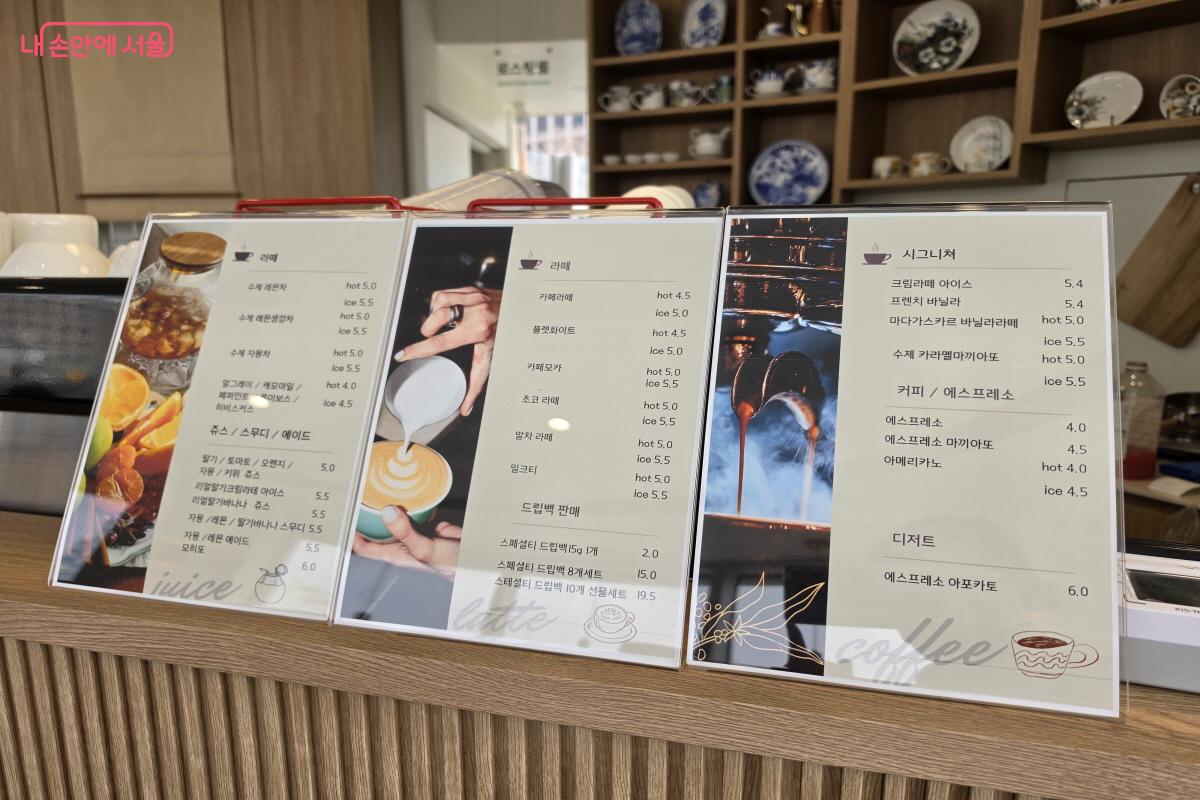 내 손안에 서울
로스팅룸
라떼
수제 레몬차 hot 5.0
ice 5.5
수제 레몬생강차 hot 5.0
ice 5.5
수제 자몽차 hot 5.0
ice 5.5
얼그레이 / 캐모마일 / hot 4.0
페퍼민트 / 루이보스 / ice 4.5
히비스커스
쥬스 / 스무디 / 에이드
딸기 / 토마토 / 오렌지 / 5.0
자몽 / 키위 쥬스
리얼딸기크림라테 아이스 5.5
리얼딸기바나나 쥬스 5.5
자몽 /레몬 / 딸기바나나 스무디 5.5
자몽 /레몬 에이드 5.5
모히또 6.0
juice
라떼
카페라떼 hot 4.5
ice 5.0
플랫화이트 hot 4.5
ice 5.0
카페모카 hot 5.0
ice 5.5
초코 라떼 hot 5.0
ice 5.5
말차 라떼 hot 5.0
ice 5.5
밀크티 hot 5.0
ice 5.5
드립백 판매
스페셜티 드립백15g 1개 2.0
스페셜티 드립백 8개세트 15.0
스테셜티 드립백 10개 선물세트 19.5
latte
시그니쳐
크림라떼 아이스 5.4
프렌치 바닐라 5.4
마다가스카르 바닐라라떼 hot 5.0
ice 5.5
수제 카라멜마끼아또 hot 5.0
ice 5.5
커피 / 에스프레소
에스프레소 4.0
에스프레소 마끼아또 4.5
아메리카노 hot 4.0
ice 4.5
디저트
에스프레소 아포카토 6.0
coffee